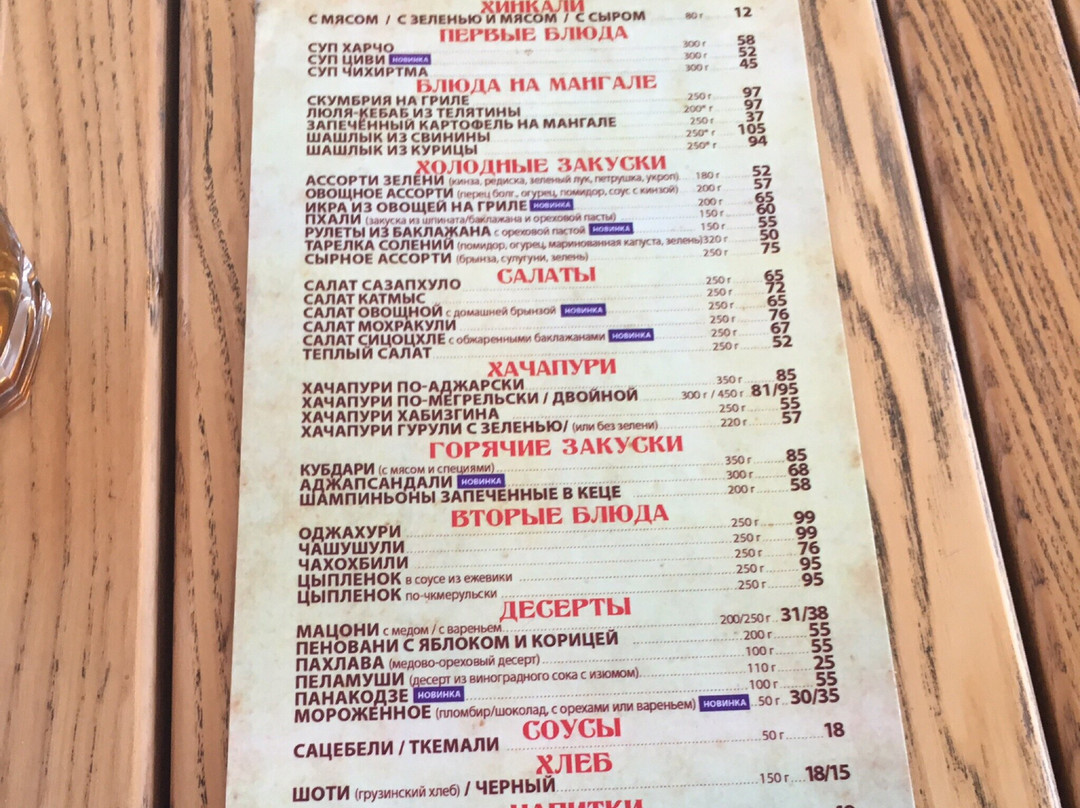 ХИНКАЛИ
С МЯСОМ / С ЗЕЛЕНЬЮ И МЯСОМ / С СЫРОМ 80 г 12
ПЕРВЫЕ БЛЮДА
СУП ХАРЧО 300 г 58
СУП ЦИВИ НОВИНКА 300 г 52
СУП ЧИХИРТМА 300 г 45
БЛЮДА НА МАНГАЛЕ
СКУМБРИЯ НА ГРИЛЕ 250 г 97
ЛЮЛЯ-КЕБАБ ИЗ ТЕЛЯТИНЫ 200* г 97
ЗАПЕЧЁННЫЙ КАРТОФЕЛЬ НА МАНГАЛЕ 250 г 37
ШАШЛЫК ИЗ СВИНИНЫ 250* г 105
ШАШЛЫК ИЗ КУРИЦЫ 250* г 94
ХОЛОДНЫЕ ЗАКУСКИ
АССОРТИ ЗЕЛЕНИ (кинза, редиска, зеленый лук, петрушка, укроп) 180 г 52
ОВОЩНОЕ АССОРТИ (перец болг., огурец, помидор, соус с кинзой) 200 г 57
ИКРА ИЗ ОВОЩЕЙ НА ГРИЛЕ НОВИНКА 200 г 65
ПХАЛИ (закуска из шпината/баклажана и ореховой пасты) 150 г 60
РУЛЕТЫ ИЗ БАКЛАЖАНА с ореховой пастой НОВИНКА 150 г 55
ТАРЕЛКА СОЛЕНИЙ (помидор, огурец, маринованная капуста, зелень) 320 г 50
СЫРНОЕ АССОРТИ (брынза, сулугуни, зелень) 250 г 75
САЛАТЫ
САЛАТ САЗАПХУЛО 250 г 65
САЛАТ КАТМЫС 250 г 72
САЛАТ ОВОЩНОЙ с домашней брынзой НОВИНКА 250 г 65
САЛАТ МОХРАКУЛИ 250 г 76
САЛАТ СИЦОЦХЛЕ с обжаренными баклажанами НОВИНКА 250 г 67
ТЕПЛЫЙ САЛАТ 250 г 52
ХАЧАПУРИ
ХАЧАПУРИ ПО-АДЖАРСКИ 350 г 85
ХАЧАПУРИ ПО-МЕГРЕЛЬСКИ / ДВОЙНОЙ 300 г / 450 г 81/95
ХАЧАПУРИ ХАБИЗГИНА 250 г 55
ХАЧАПУРИ ГУРУЛИ С ЗЕЛЕНЬЮ/ (или без зелени) 220 г 57
ГОРЯЧИЕ ЗАКУСКИ
КУБДАРИ (с мясом и специями) 350 г 85
АДЖАПСАНДАЛИ НОВИНКА 300 г 68
ШАМПИНЬОНЫ ЗАПЕЧЕННЫЕ В КЕЦЕ 200 г 58
ВТОРЫЕ БЛЮДА
ОДЖАХУРИ 250 г 99
ЧАШУШУЛИ 250 г 99
ЧАХОХБИЛИ 250 г 76
ЦЫПЛЕНОК в соусе из ежевики 250 г 95
ЦЫПЛЕНОК по-чкмерульски 250 г 95
ДЕСЕРТЫ
МАЦОНИ с медом / с вареньем 200/250 г 31/38
ПЕНОВАНИ С ЯБЛОКОМ И КОРИЦЕЙ 200 г 55
ПАХЛАВА (медово-ореховый десерт) 100 г 55
ПЕЛАМУШИ (десерт из виноградного сока с изюмом) 110 г 25
ПАНАКОДЗЕ НОВИНКА 100 г 55
МОРОЖЕННОЕ (пломбир/шоколад, с орехами или вареньем) НОВИНКА 50 г 30/35
СОУСЫ
САЦЕБЕЛИ / ТКЕМАЛИ 50 г 18
ХЛЕБ
ШОТИ (грузинский хлеб) / ЧЕРНЫЙ 150 г 18/15
НАПИТКИ